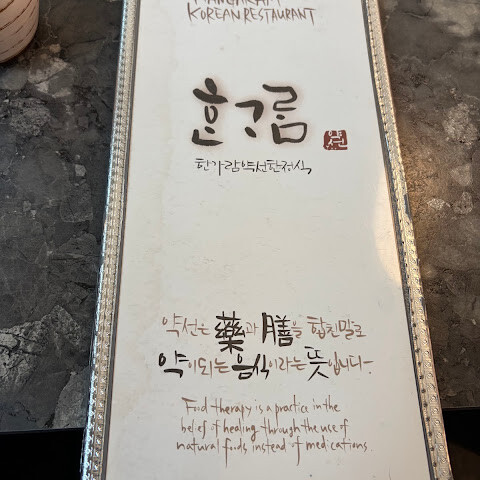 HANGARAM
KOREAN RESTAURANT
한가람
약선
한가람약선한정식
약선은 藥과 膳을 합친말로
약이되는 음식이라는 뜻입니다-
Food therapy is a practice in the
belief of healing through the use of
natural foods instead of medications.